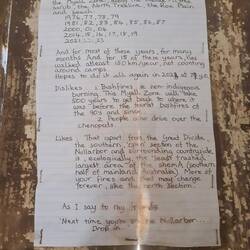 the Myall Zone,
with the North Treeline, the Roe Plain
and beach.
1976, 77, 78, 79
1981, 82, 83, 84, 85, 86, 87
2000, 01, 04
2014, 15, 16, 17, 18, 19
2021, 23
And for most of these years, for many
months. And for 18 of the years, I've
walked atleast 10 km/year, not counting
around camps.
Hopes to do it all again in 202
Dislikes 1. Bushfires is non-indigenous
burning. This Myall Zone, needs
500 years to get back to where it
was before the bushfires of
the 90's and since.
2. People who drive over the
chenopods
Likes That apart from the Great Divide,
the southern, open section of the
Nullarbor and surrounding countryside
it, ecologically, the least trashed
largest area of the (southern
half of mainland Australia). More
of your fires and that may change
forever, like the north section.
As I say to my friends
"Next time you're on the Nullarbor
Drop in.